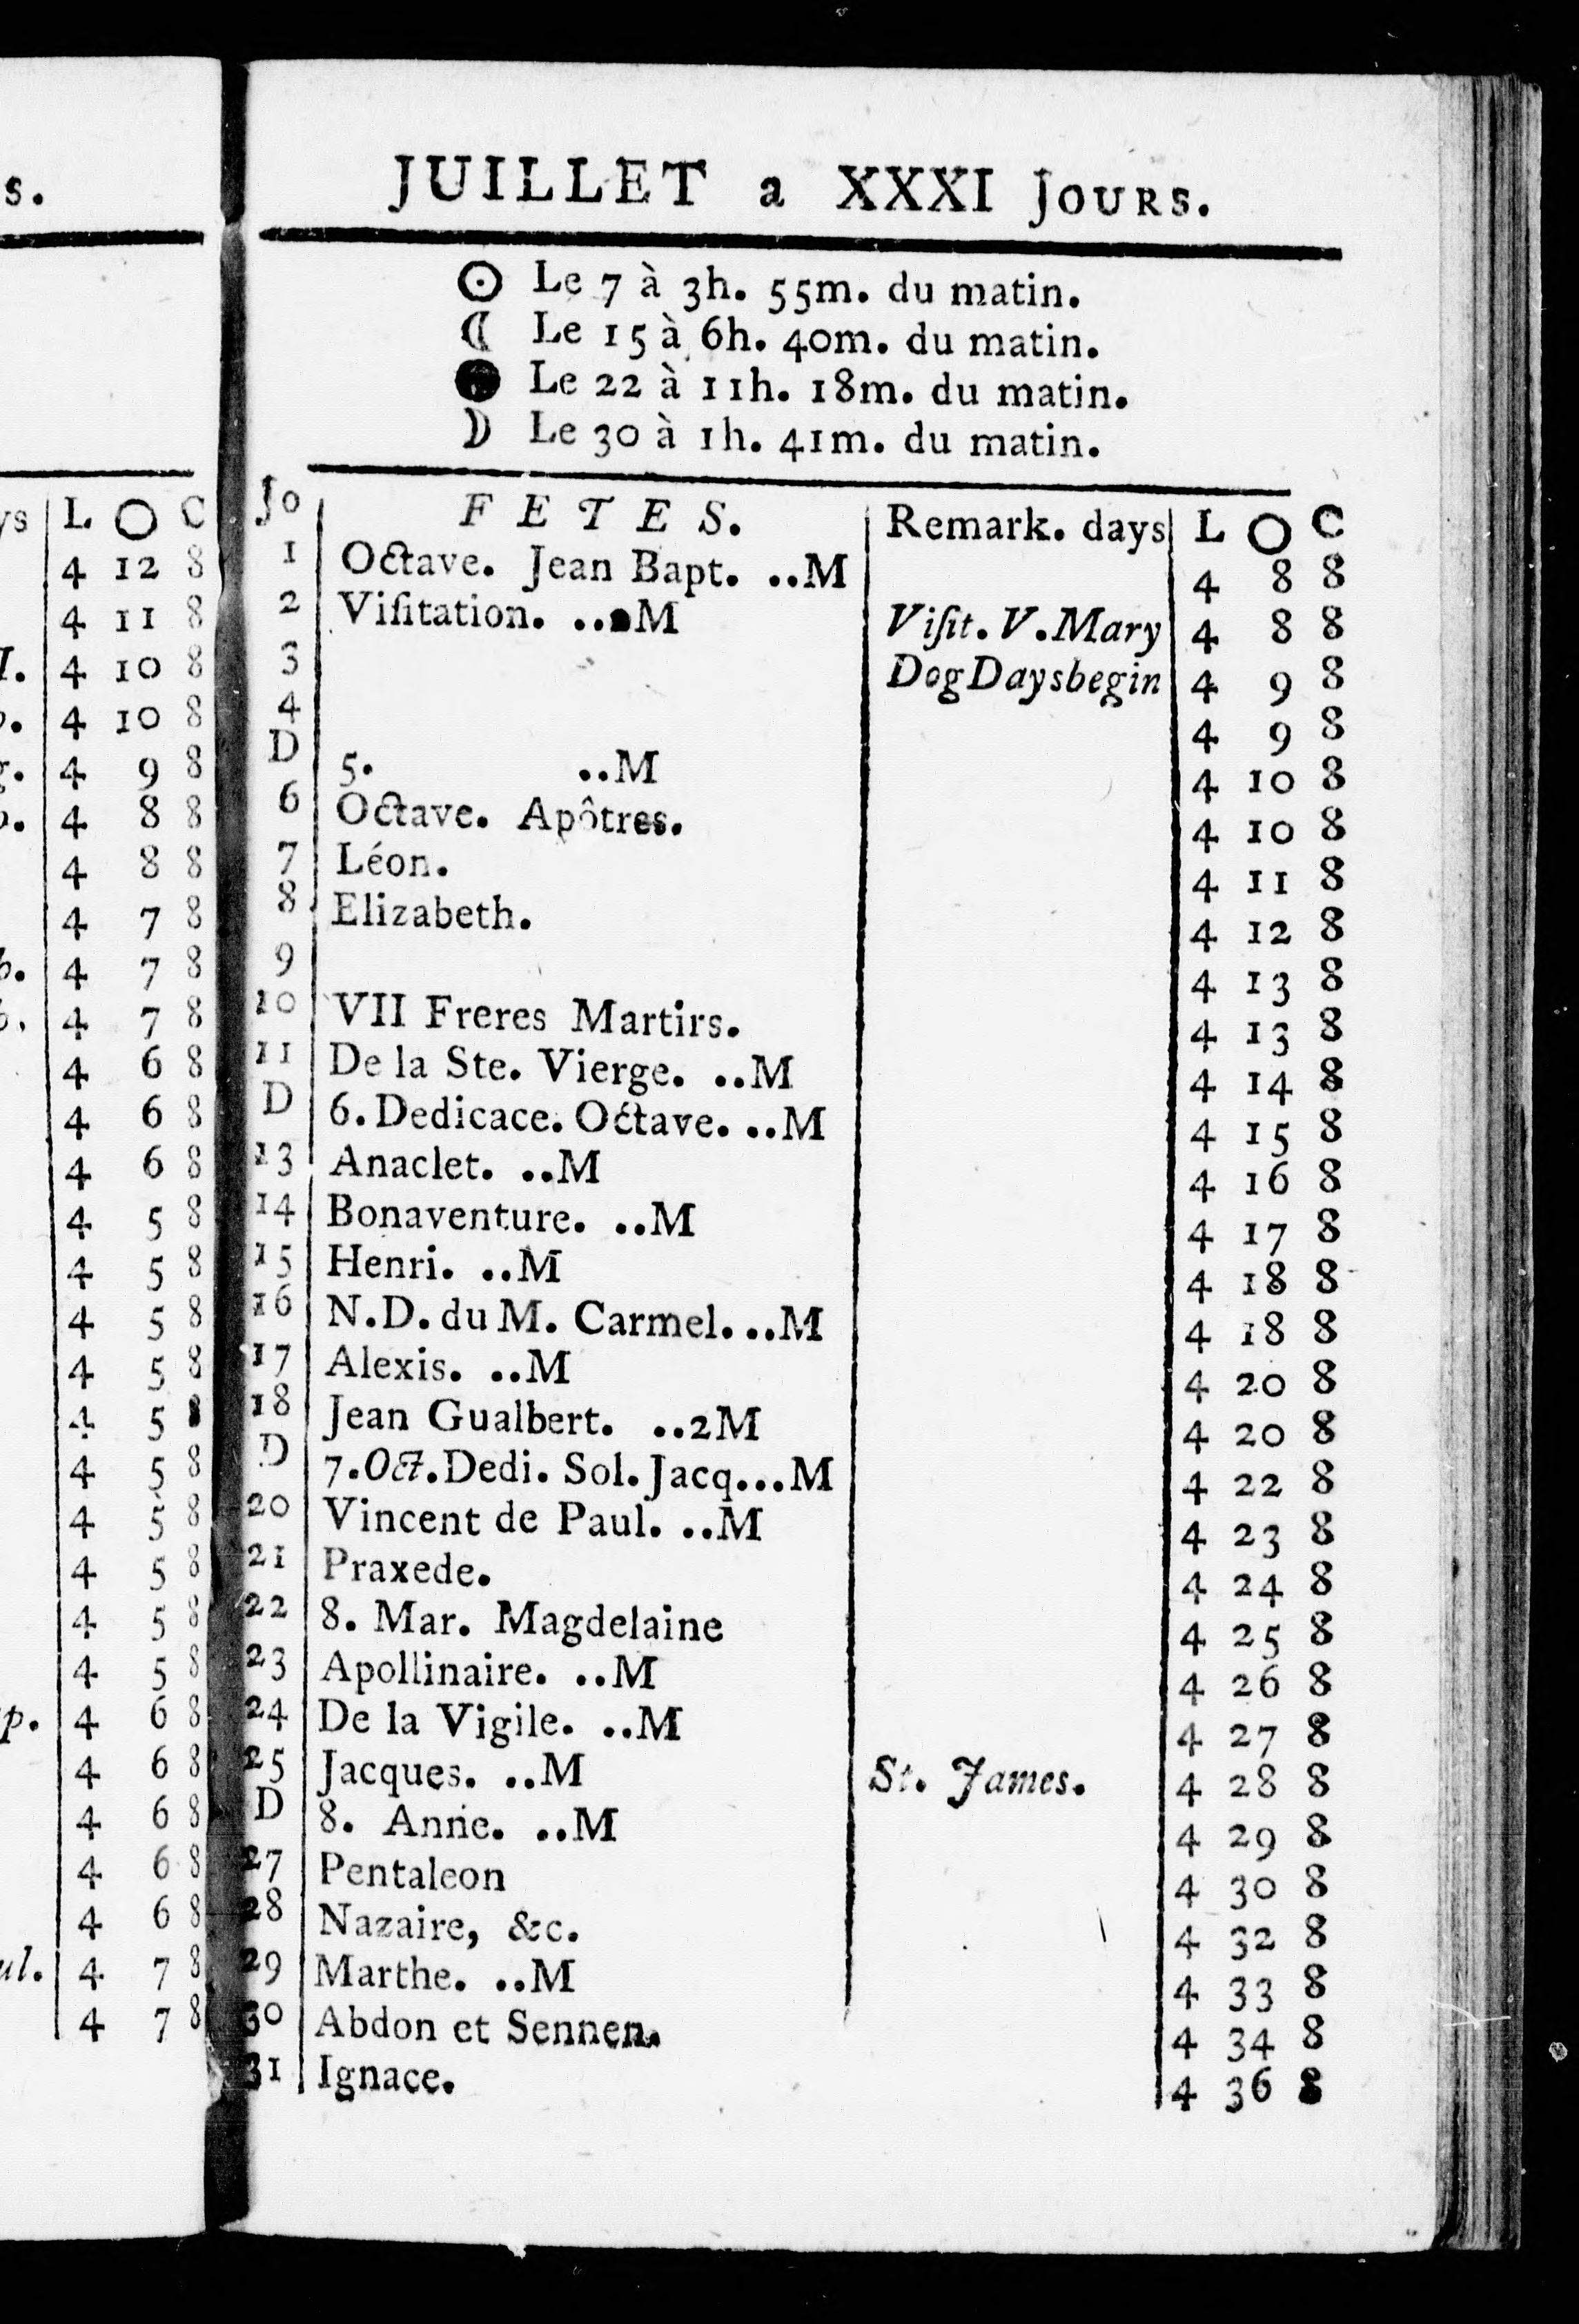 s.
ys L O C
4 12 8
4 11 8
I. 4 10 8
4 10 8
4 9 8
4 8 8
4 8 8
4 7 8
b. 4 7 8
4 7 8
4 6 8
4 6 8
4 6 8
4 5 8
4 5 8
4 5 8
4 5 8
4 5 8
4 5 8
4 5 8
4 5 8
4 5 8
4 5 8
p. 4 6 8
4 6 8
4 6 8
4 6 8
4 6 8
ul. 4 7 8
4 7 8
JUILLET a XXXI JOURS.
☉ Le 7 à 3h. 55m. du matin.
☾ Le 15 à 6h. 40m. du matin.
● Le 22 à 11h. 18m. du matin.
☽ Le 30 à 1h. 41m. du matin.
Jo FETES. Remark. days L O C
1 Octave. Jean Bapt. ..M 4 8 8
2 Viſitation. ...M Viſit. V. Mary 4 8 8
3 Dog Days begin 4 9 8
4 4 9 8
D 5. ..M 4 10 8
6 Octave. Apôtres. 4 10 8
7 Léon. 4 11 8
8 Elizabeth. 4 12 8
9 4 13 8
10 VII Freres Martirs. 4 13 8
11 De la Ste. Vierge. ..M 4 14 8
D 6. Dedicace. Octave. ..M 4 15 8
13 Anaclet. ..M 4 16 8
14 Bonaventure. ..M 4 17 8
15 Henri. ..M 4 18 8
16 N.D. du M. Carmel. ..M 4 18 8
17 Alexis. ..M 4 20 8
18 Jean Gualbert. ..2M 4 20 8
D 7. Oct. Dedi. Sol. Jacq...M 4 22 8
20 Vincent de Paul. ..M 4 23 8
21 Praxede. 4 24 8
22 8. Mar. Magdelaine 4 25 8
23 Apollinaire. ..M 4 26 8
24 De la Vigile. ..M 4 27 8
25 Jacques. ..M St. James. 4 28 8
D 8. Anne. ..M 4 29 8
27 Pentaleon 4 30 8
28 Nazaire, &c. 4 32 8
29 Marthe. ..M 4 33 8
30 Abdon et Sennen. 4 34 8
31 Ignace. 4 36 8